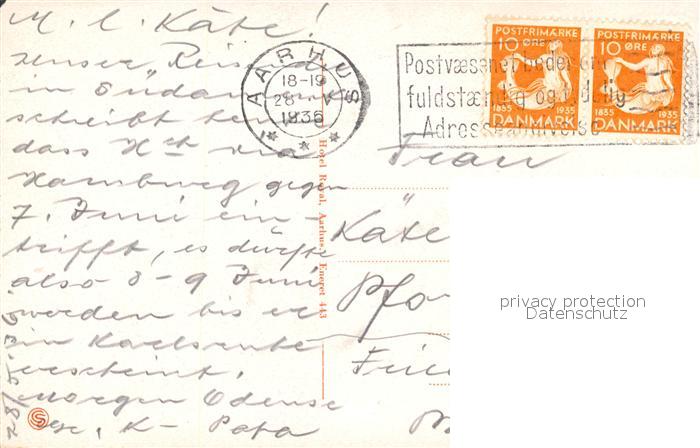 M. l. Käte!
unser Reisende
in Südamerika
schreibt heute
dass via
Hamburg gegen
7. Juni ein-
trifft, es dürfte
also 8-9 Juni
werden bis er
in Karlsruhe
erscheint.
Morgen Odense
K- Papa
28/5.36
Hotel Royal, Aarhus. Eneret 443
AARHUS
18-19
28 V
1936
Postvæsenet beder om
fuldstændig og tydelig
Adresseangivelse
POSTFRIMÆRKE
10 ØRE
1835 1935
DANMARK
POSTFRIMÆRKE
10 ØRE
1835 1935
DANMARK
Frau
Käte
Pfo
Frie
privacy protection
Datenschutz